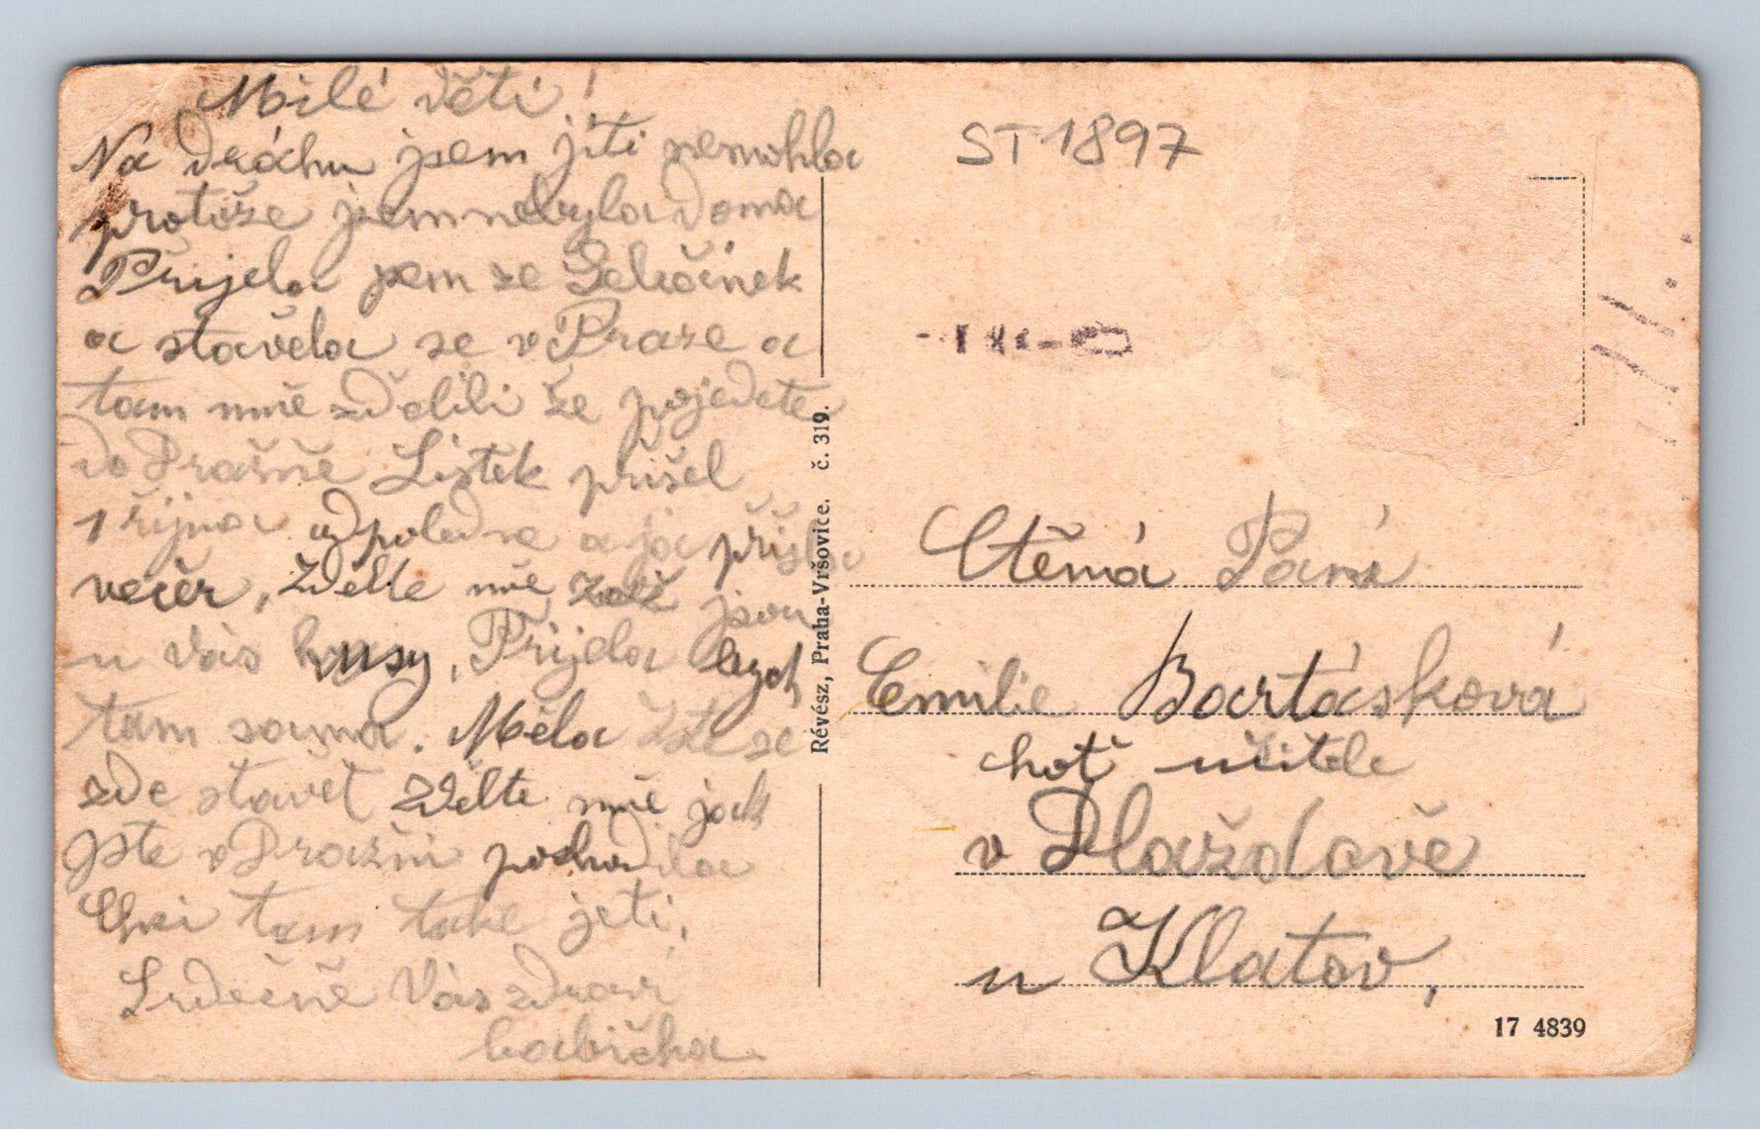 Milé děti!
Na dráhu jsem jíti nemohla
protože jsem nebyla doma
Přijela jsem ze Selčánek
a stavěla se v Praze a
tam mně zdělili že pojedete
do Prašně Lístek přišel
1 října odpoledne a já přišla
večer, zdělte mě zdež jsou
u Vás husy, Přijela bych
tam sama. Měla jste se
zde stavět zdělte mně jak
jste v Prašni pochodila
Chci tam také jeti.
Srdečně Vás zdraví
babička
ST1897
Révész, Praha-Vršovice. č. 319.
Ctěná Paní
Emilie Bartásková
choť učitele
v Dlažďově
u Klatov,
17 4839